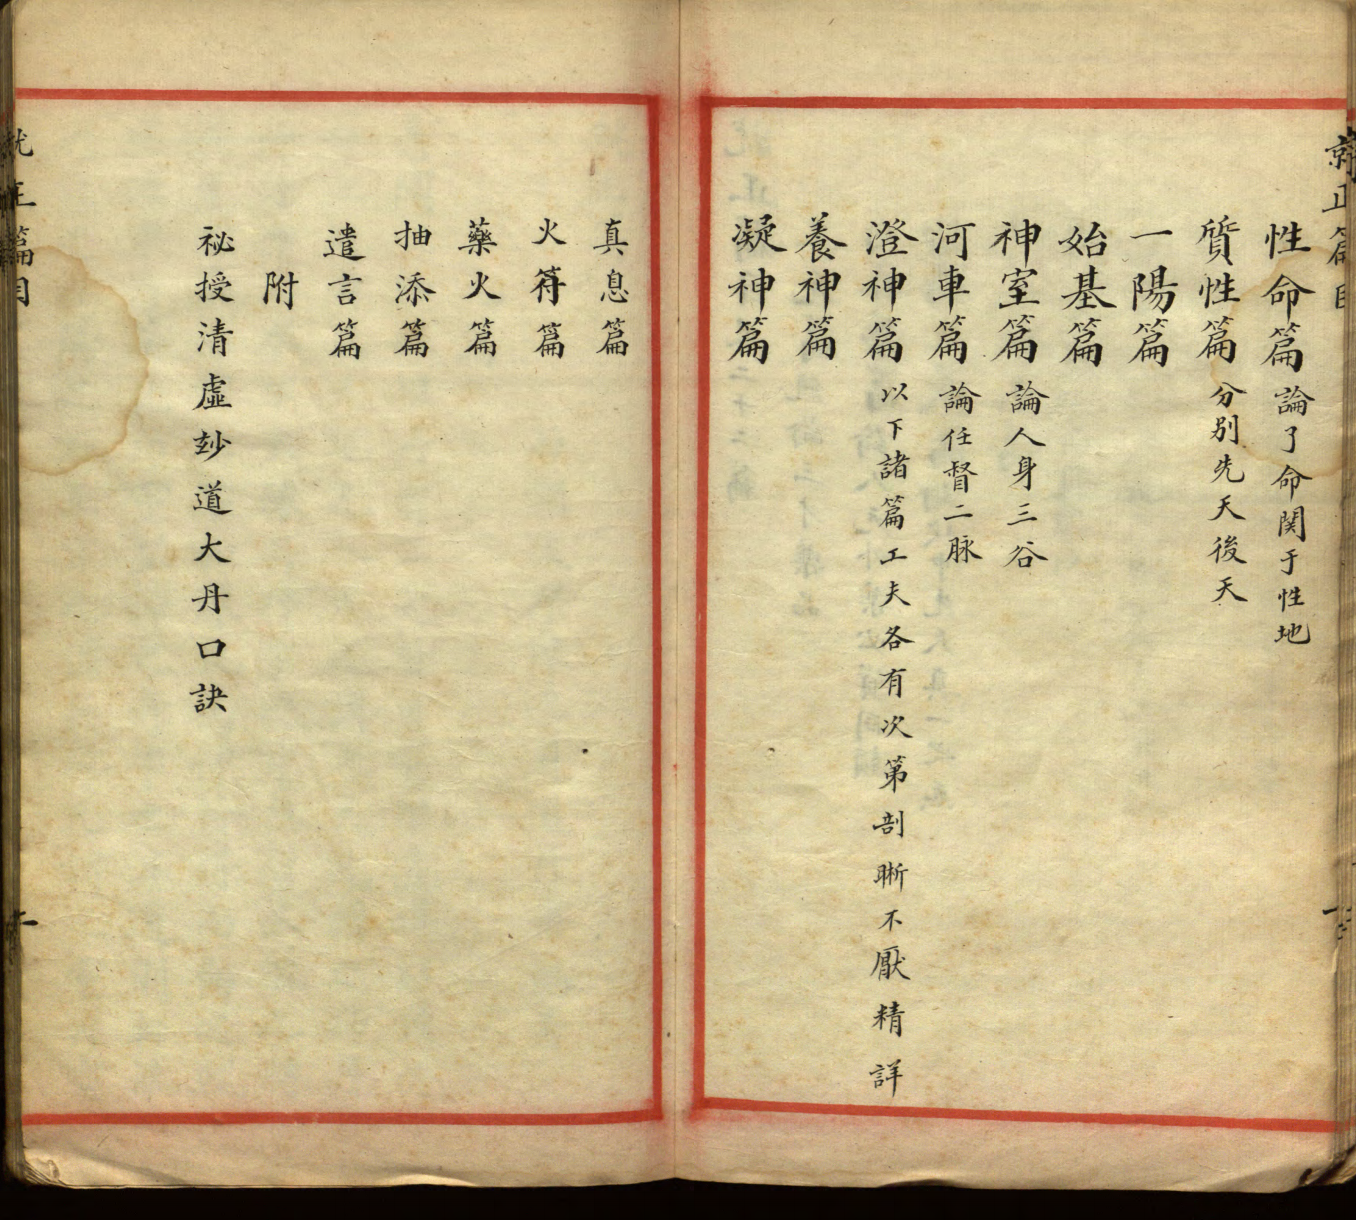 性命篇 論了命関于性地
質性篇 分别先天後天
一陽篇
始基篇
神室篇 論人身三谷
河車篇 論任督二脉
澄神篇 以下諸篇工夫各有次第剖晰不厭精詳
養神篇
凝神篇
真息篇
火符篇
藥火篇
抽添篇
遣言篇
附
祕授清虛玅道大丹口訣